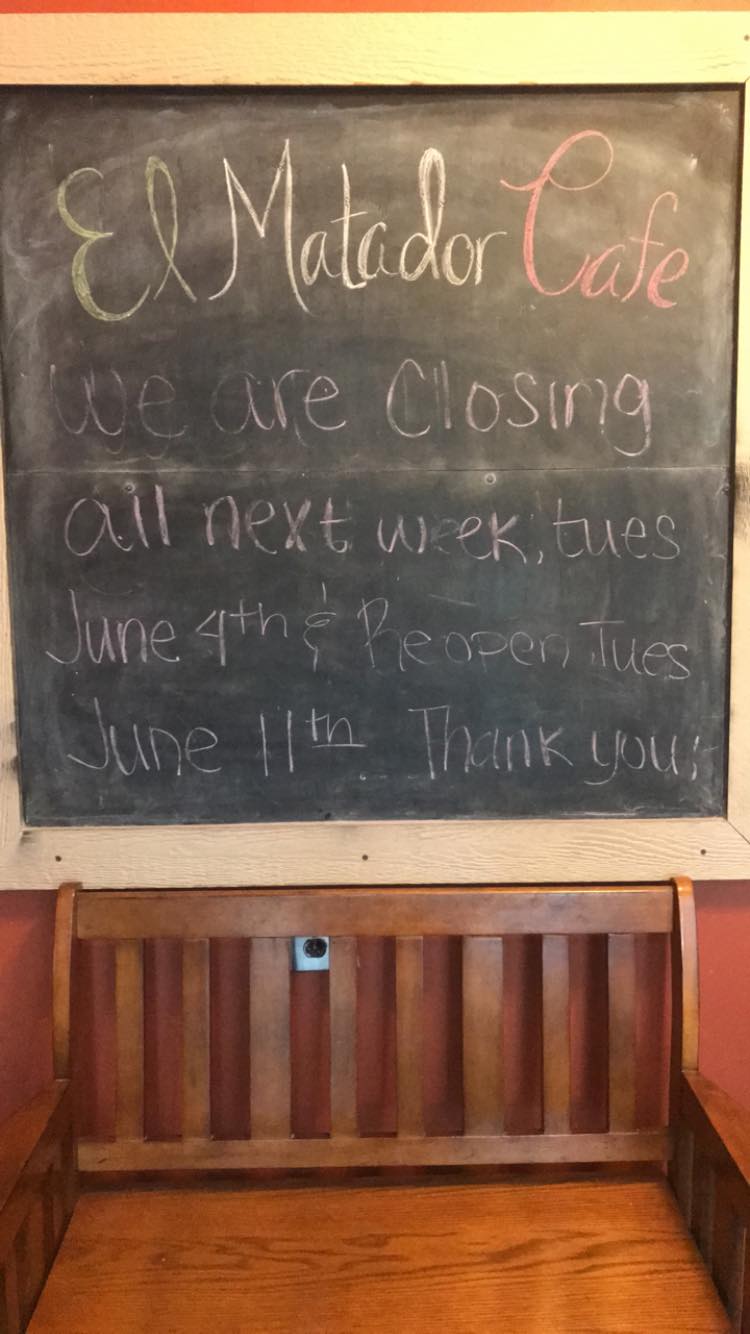 El Matador Cafe
We are Closing
all next week, tues
June 4th & Reopen Tues
June 11th Thank you!